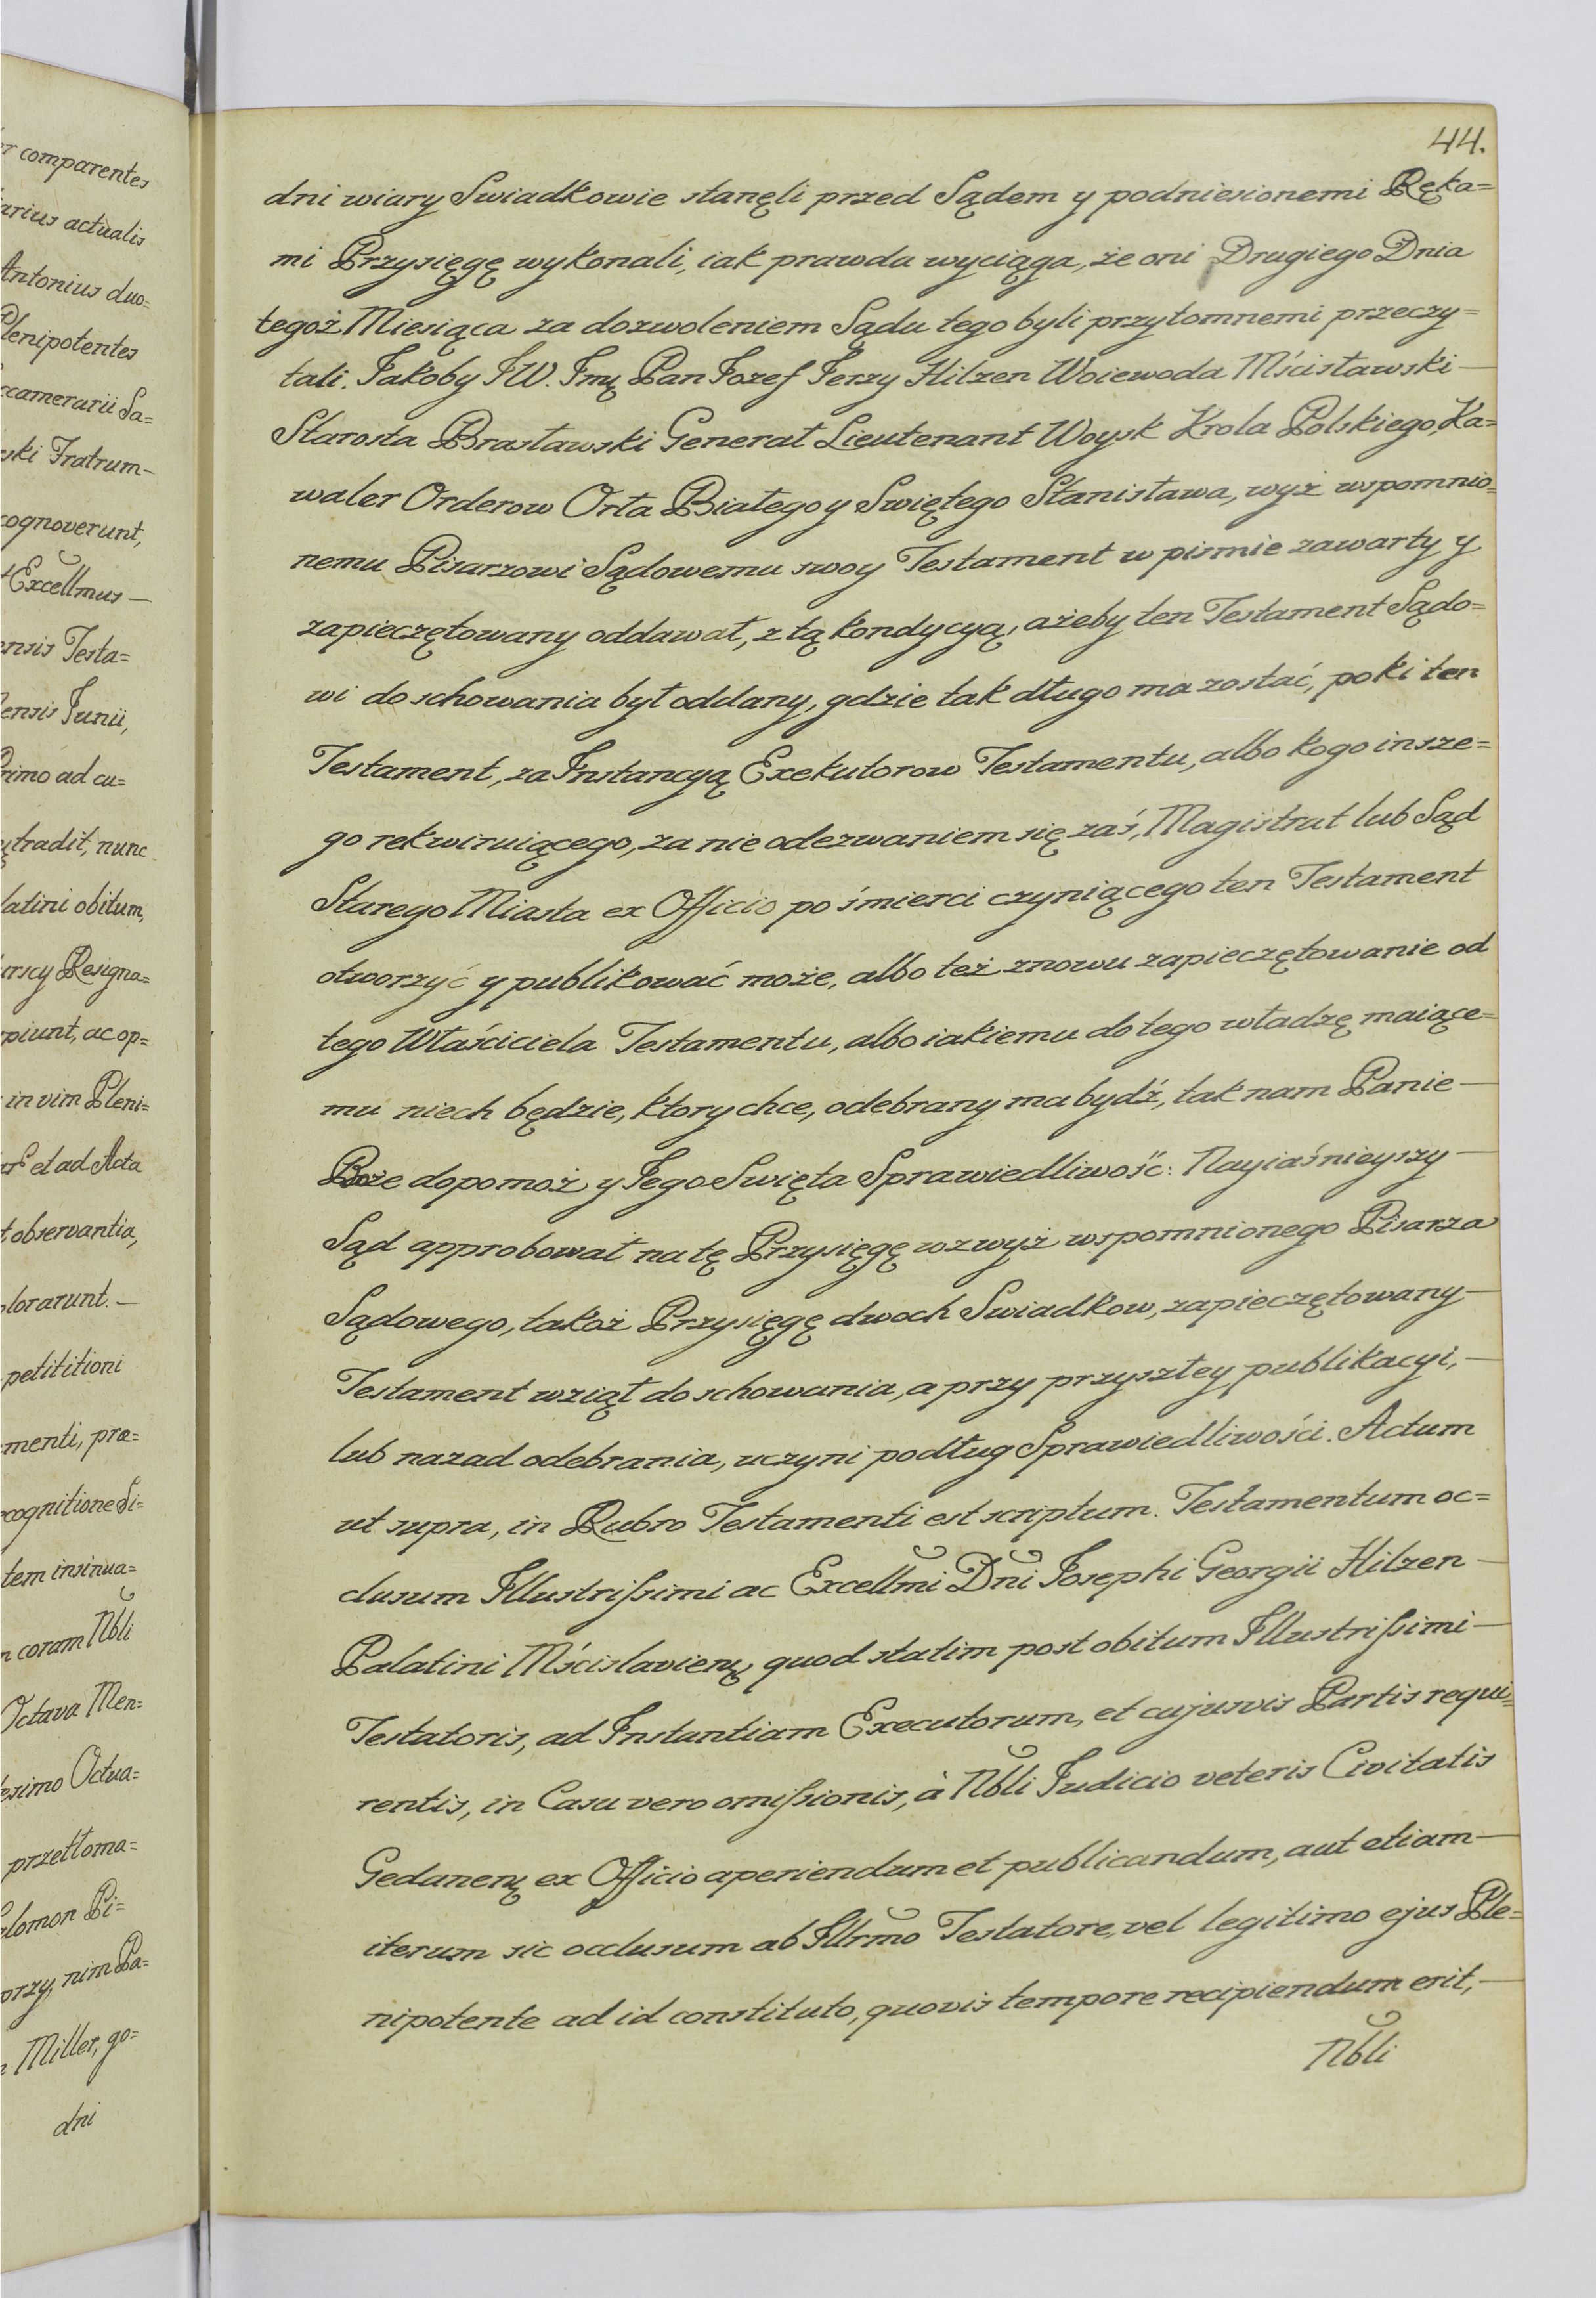 r comparentes
arius actualis
Antonius duo=
Plenipotentes
ccamerarii Sa=
ski Fratrum-
cognoverunt,
Excellmus—
ensis Testa=
ensis Junii,
rimo ad cu=
tradit, nunc
latini obitum,
urscy Resigna=
piunt, ac op=
in vim Pleni=
et ad Acta
t observantia,
lorarunt.—
petititioni
menti, præ=
cognitione Si=
tem insinua=
n coram Nbli
Octava Men=
esimo Octua=
przetłoma=
alomon Pi=
orzy, nim Pa=
Miller, go=
dni
44.
dni wiary Swiadkowie stanęli przed Sądem y podniesionemi Ręka=
mi Przysięgę wykonali, iak prawda wyciąga, że oni Drugiego Dnia
tegoż Miesiąca za dozwoleniem Sądu tego byli przytomnemi przeczy=
tali. Jakoby JW. Jmę Pan Jozef Jerzy Hilzen Woiewoda Mścisławski—
Starosta Brasławski Generał Lieutenant Woysk Krola Polskiego, Ka=
waler Orderow Orła Białego y Swiętego Stanisława, wyż wspomnio=
nemu Pisarzowi Sądowemu swoy Testament w pismie zawarty y
zapieczętowany oddawał, z tą kondycyą, ażeby ten Testament Sądo=
wi do schowania był oddany, gdzie tak długo ma zostać, poki ten
Testament, za Instancyą Exekutorow Testamentu, albo kogo insze=
go rekwiruiącego, za nie odezwaniem się zaś, Magistrat lub Sąd
Starego Miasta ex Officio po śmierci czyniącego ten Testament
otworzyć y publikować może, albo też znowu zapieczętowanie od
tego Właściciela Testamentu, albo iakiemu do tego władzę maiące=
mu niech będzie, ktory chce, odebrany ma bydź, tak nam Panie—
Boże dopomoż y Jego Swięta Sprawiedliwość: Nayiaśnieyszy—
Sąd approbował na tę Przysięgę wzwyż wspomnionego Pisarza
Sądowego, takoż Przysięgę dwoch Swiadkow, zapieczętowany—
Testament wziął do schowania, a przy przyszłey publikacyi,—
lub nazad odebrania, uczyni podług Sprawiedliwości. Actum
ut supra, in Rubro Testamenti est scriptum. Testamentum oc=
clusum Illustrissimi ac Excellmi Dni Josephi Georgii Hilzen—
Palatini Mścislavienę, quod statim post obitum Illustrissimi—
Testatoris, ad Instantiam Executorum, et cujusvis Partis requi=
rentis, in Casu vero omissionis, à Nbli Judicio veteris Civitatis
Gedanenę ex Officio aperiendum et publicandum, aut etiam—
iterum sic occlusum ab Illrmo Testatore, vel legitimo ejus Ple=
nipotente ad id constituto, quovis tempore recipiendum erit,—
Nbli